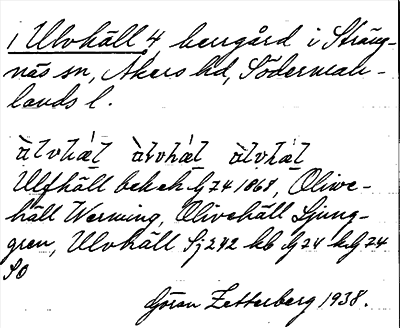 1 Ulvhäll 4, herrgård i Sträng-
näs sn, Åkers hd, Söderman-
lands l.
àlvhæ̀l àlvhàl àlvhàl
Ulfhäll bekeh G 74 1868, Oliwe-
häll Werming, Olivehäll Ljung-
gren, Ulvhäll Sj 242 kb G 24 kG 24
SO
Göran Zetterberg 1938.